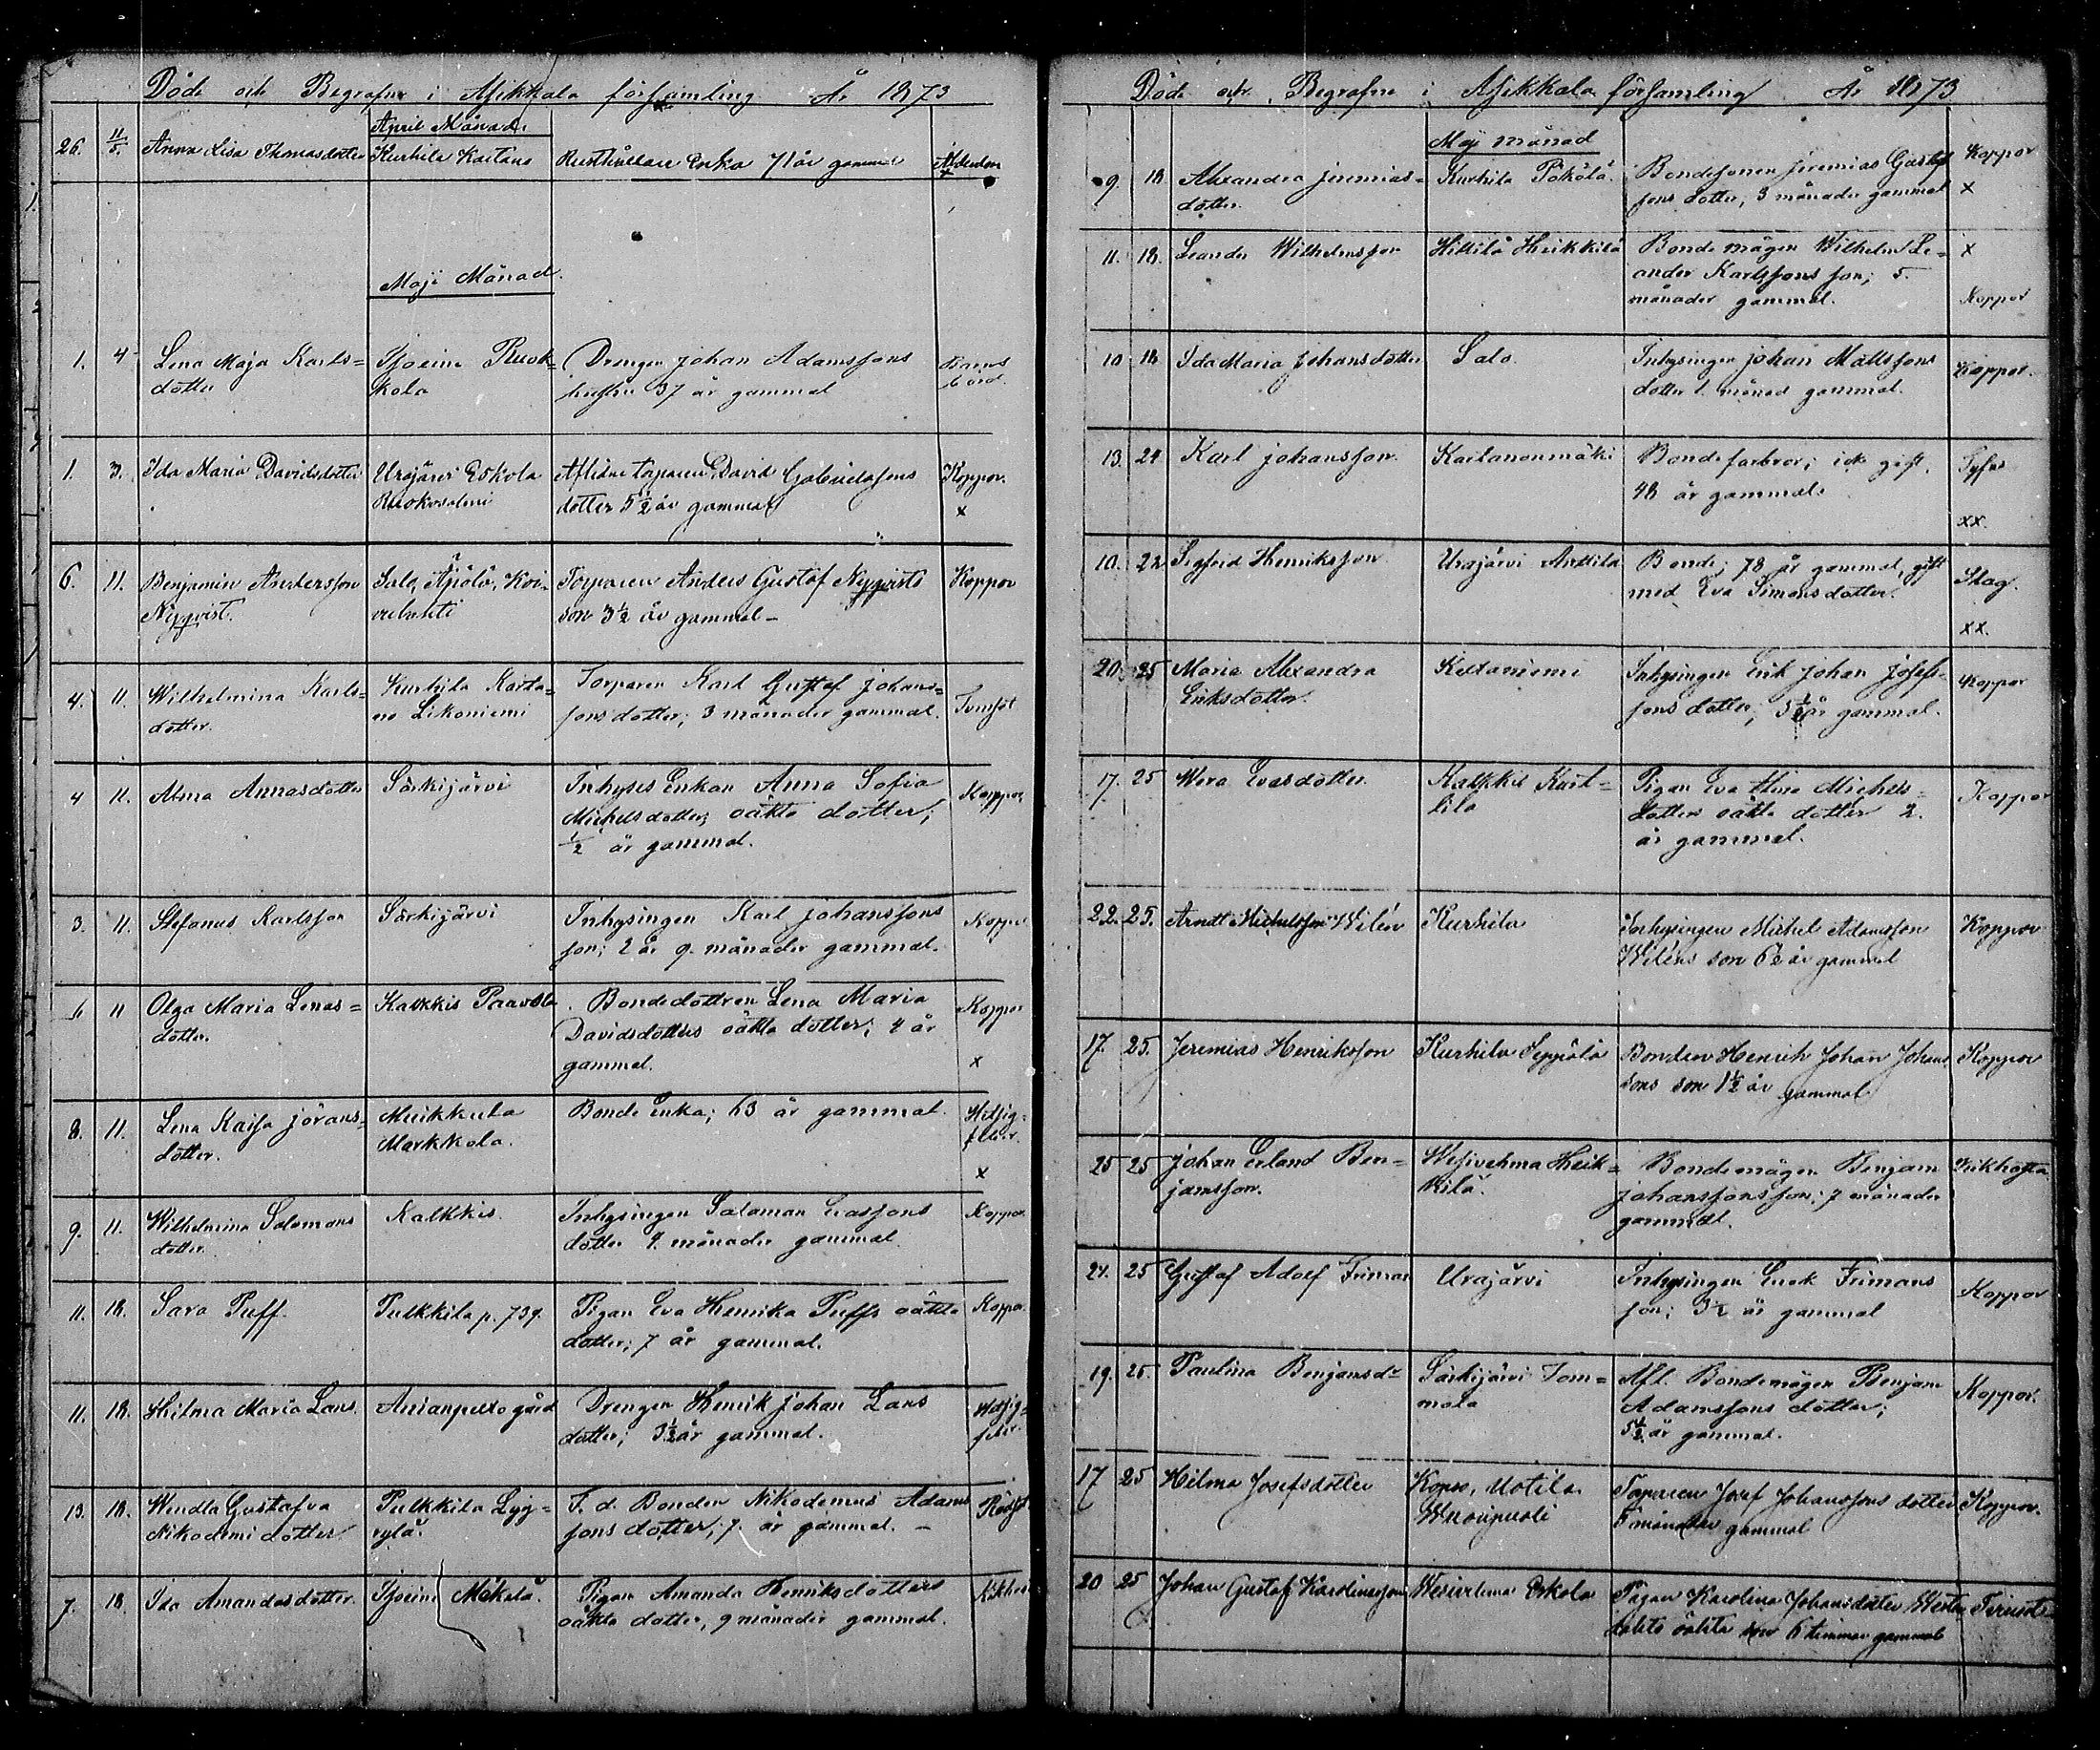 Döde och Begrafne i Asikkala församling År 1873
April Månad.
26. 11/5. Anna Lisa Thomasdotter Kurhila Kartano Rusthållare Enka 71 år gammal
Maji Månad.
1. 4 Lena Maja Karls= Drengen Johan Adamssons Barns
dotter kola hustru 37 år gammal börd
1. 3. Ida Maria Davidsdotter Urajärvi Eskola Aflidne torparen David Gabrielssons Koppor.
Ruokosalmi dotter 5 1/2 år gammal x
6. 11. Benjamin Andersson Salo, Äpölä, Koi= Torparen Anders Gustaf Nyqvists Koppor
Nyqvist. son 3 1/2 år gammal –
4. 11. Wilhelmina Karls= Kurhila Karta= Torparen Karl Gustaf Johans=
dotter. no Likoniemi sons dotter; 3 månader gammal.
4 11. Alma Annasdotter Särkijärvi Inhyses Enkan Anna Sofia Koppor
Michelsdotters oäkta dotter;
1/2 år gammal.
3. 11. Stefanus Karlsson Särkijärvi Inhysingen Karl Johanssons Koppor
son; 2 år 9. månader gammal.
11 Olga Maria Lenas= Kalkkis Paavola Bondedottren Lena Maria Koppor
dotter. Davidsdotters oäkta dotter; 4 år
gammal. x
8. 11. Lena Kajsa Jörans= Muikkula Bonde Enka; 63 år gammal. Hetsig=
dotter. Markkola. feber.
x
9. 11. Wilhelmina Salomons Kalkkis. Inhysingen Salomon Evassons Koppor.
dotter. dotter 9. månader gammal.
11. 18. Sara Puff. Pulkkila p. 739. Pigan Eva Henrika Puffs oäkta Koppor.
dotter; 7 år gammal.
11. 18. Hilma Maria Lans. Anianpelto gård Drengen Henrik Johan Lans Hetsig=
dotter; 3 1/2 år gammal. feber
13. 18. Wendla Gustafva Pulkkila Lyy= F. d. Bonden Nikodemus Adams
Nikodemi dotter rylä. sons dotter; 7. år gammal. –
7. 18. Ida Amandasdotter. Mäkelä. Pigan Amanda Henriksdotters
oäkta dotter, 9 månader gammal.
Döde och Begrafne i Asikkala församling År 1873
Maj månad
9. 18 Alexandra Jeremias= Kurhila Pökölä. Bondesonen Jeremias Gustaf Koppor
dotter. sons dotter, 3 månader gammal x
11. 18. Leander Wilhelmsson Hillilä Heikkilä Bonde mågen Wilhelm Le= x
ander Karlssons son; 5.
månader gammal. Koppor
10 18 Ida Maria Johansdotter Salo. Inhysingen Johan Mattssons Koppor.
dotter 1. månad gammal.
13. 24 Karl Johansson. Kaitanonmäki Bondefarbror; ick gift. Tyfus
48 år gammal. xx.
10. 22 Sigfrid Henriksson Urajärvi Anttila Bonde; 78 år gammal, gift Slag.
med Eva Simonsdotter. xx.
20. 25 Maria Alexandra Keltaniemi Inhysingen Erik Johan Josefs= Koppor
Eriksdotter. sons dotter; 3 1/2 år gammal.
17. 25 Wera Evasdotter. Kalkkis Pigan Eva Michels= Koppor
lila dotters oäkta dotter 2.
år gammal.
22. 25. Arndt Michelsson Wilén Kurhila Inhysingen Michel Adamsson Koppor
Wiléns son 6 1/2 år gammal
17. 25. Jeremias Henriksson Kurhila Seppälä Bonden Henrik Johan Johans Koppor
sons son 1 1/2 år gammal
25 25 Johan Erland Ben= Wesivehma Heik= Bondemågen Benjam Kikhosta
jamsson. kilä. Johanssons son; 7 månader
gammal.
21. 25 Gustaf Adolf Friman Urajärvi Inhysingen Enok Frimans Koppor
son; 3 1/2 år gammal
19. 25. Paulina Benjamsdr Särkijärvi Tom= Afl. Bondemågen Benjam Koppor.
mola Adamssons dotter;
5 1/2 år gammal.
17 25 Hilma Josefsdotter Uotila Torparen Josef Johanssons dotter Koppor.
5 månader gammal
20 25 Johan Gustaf Karolinasson Wesivehma Eskola Pigan Karolina Johansdotter
oäkta son 6 timmar gammal